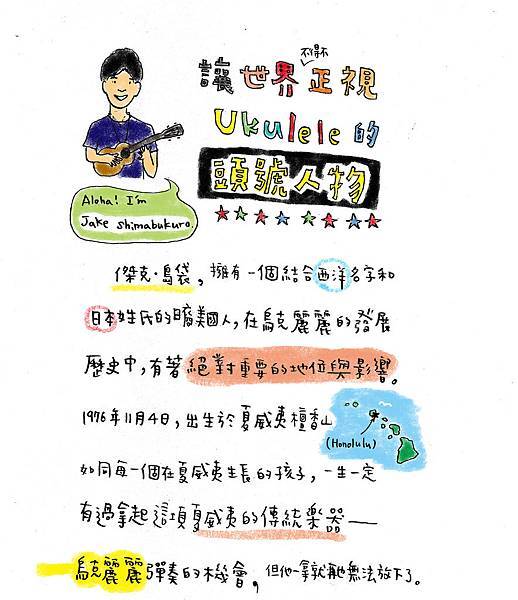 讓世界不得不正視
Ukulele的
頭號人物
Aloha! I'm
Jake Shimabukuro.
傑克·島袋,擁有一個結合西洋名字和
日本姓氏的日裔美國人,在烏克麗麗的發展
歷史中,有著絕對重要的地位與影響。
1976年11月4日,出生於夏威夷檀香山
(Honolulu)
如同每一個在夏威夷生長的孩子,一生一定
有過拿起這項夏威夷的傳統樂器——
烏克麗麗彈奏的機會,但他一拿就再也無法放下了。